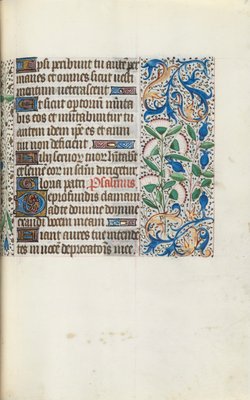 Ipsi peribunt tu aute per
manes et omnes sicut vesti
mentum veterascent
Et sicut optorium muta
bis eos et mutabuntur tu
autem idem ipse es et anni
tui non deficient
Filij servor tuor habitabt
et semen eor in seclm dirigetur
Gloria patri Psalmus
De profundis clamavi
ad te domine domine
exaudi vocem meam
Fiant aures tue intende
tes in voce deprecatois mee